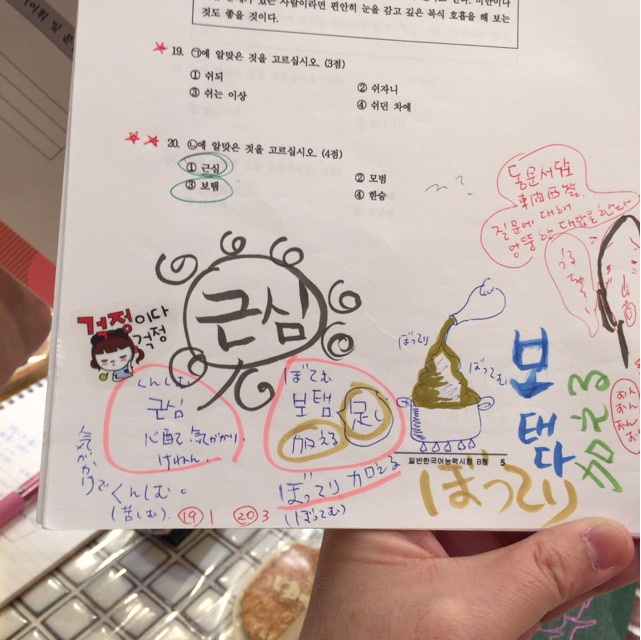 있는 사람이라면 편안히 눈을 감고 깊은 복식 호흡을 해 보는
것도 좋을 것이다.
19. ㉠에 알맞은 것을 고르십시오. (3점)
① 쉬되
② 쉬자니
③ 쉬는 이상
④ 쉬던 차에
20. ㉡에 알맞은 것을 고르십시오. (4점)
① 근심
② 모범
③ 보탬
④ 한숨
동문서답
東問西答
질문에 대해
엉뚱한 대답을 한다
근심
걱정이다
걱정
くんしむ
근심
心配 気がかり
けねん
気がかりで くんしむ。
(苦しむ)
19 1
20 3
ぼてむ
보탬
足し
加える
ぼってり 加える
(ぼってむ)
ぼってり
ぼってむ
일반한국어능력시험 B형 5
ぼってり
보태다
加える